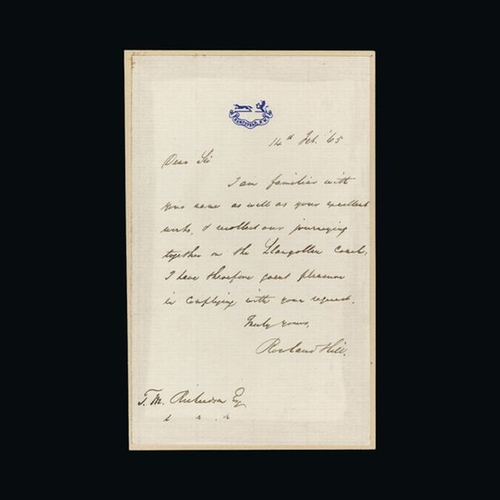 14th Feb. '65
Dear Sir
I am familiar with
your name as well as your excellent
works, & recollect our journeying
together on the Llangollen Coach,
I have therefore great pleasure
in complying with your request.
Truly yours,
Rowland Hill.
T. M. Richardson Esq